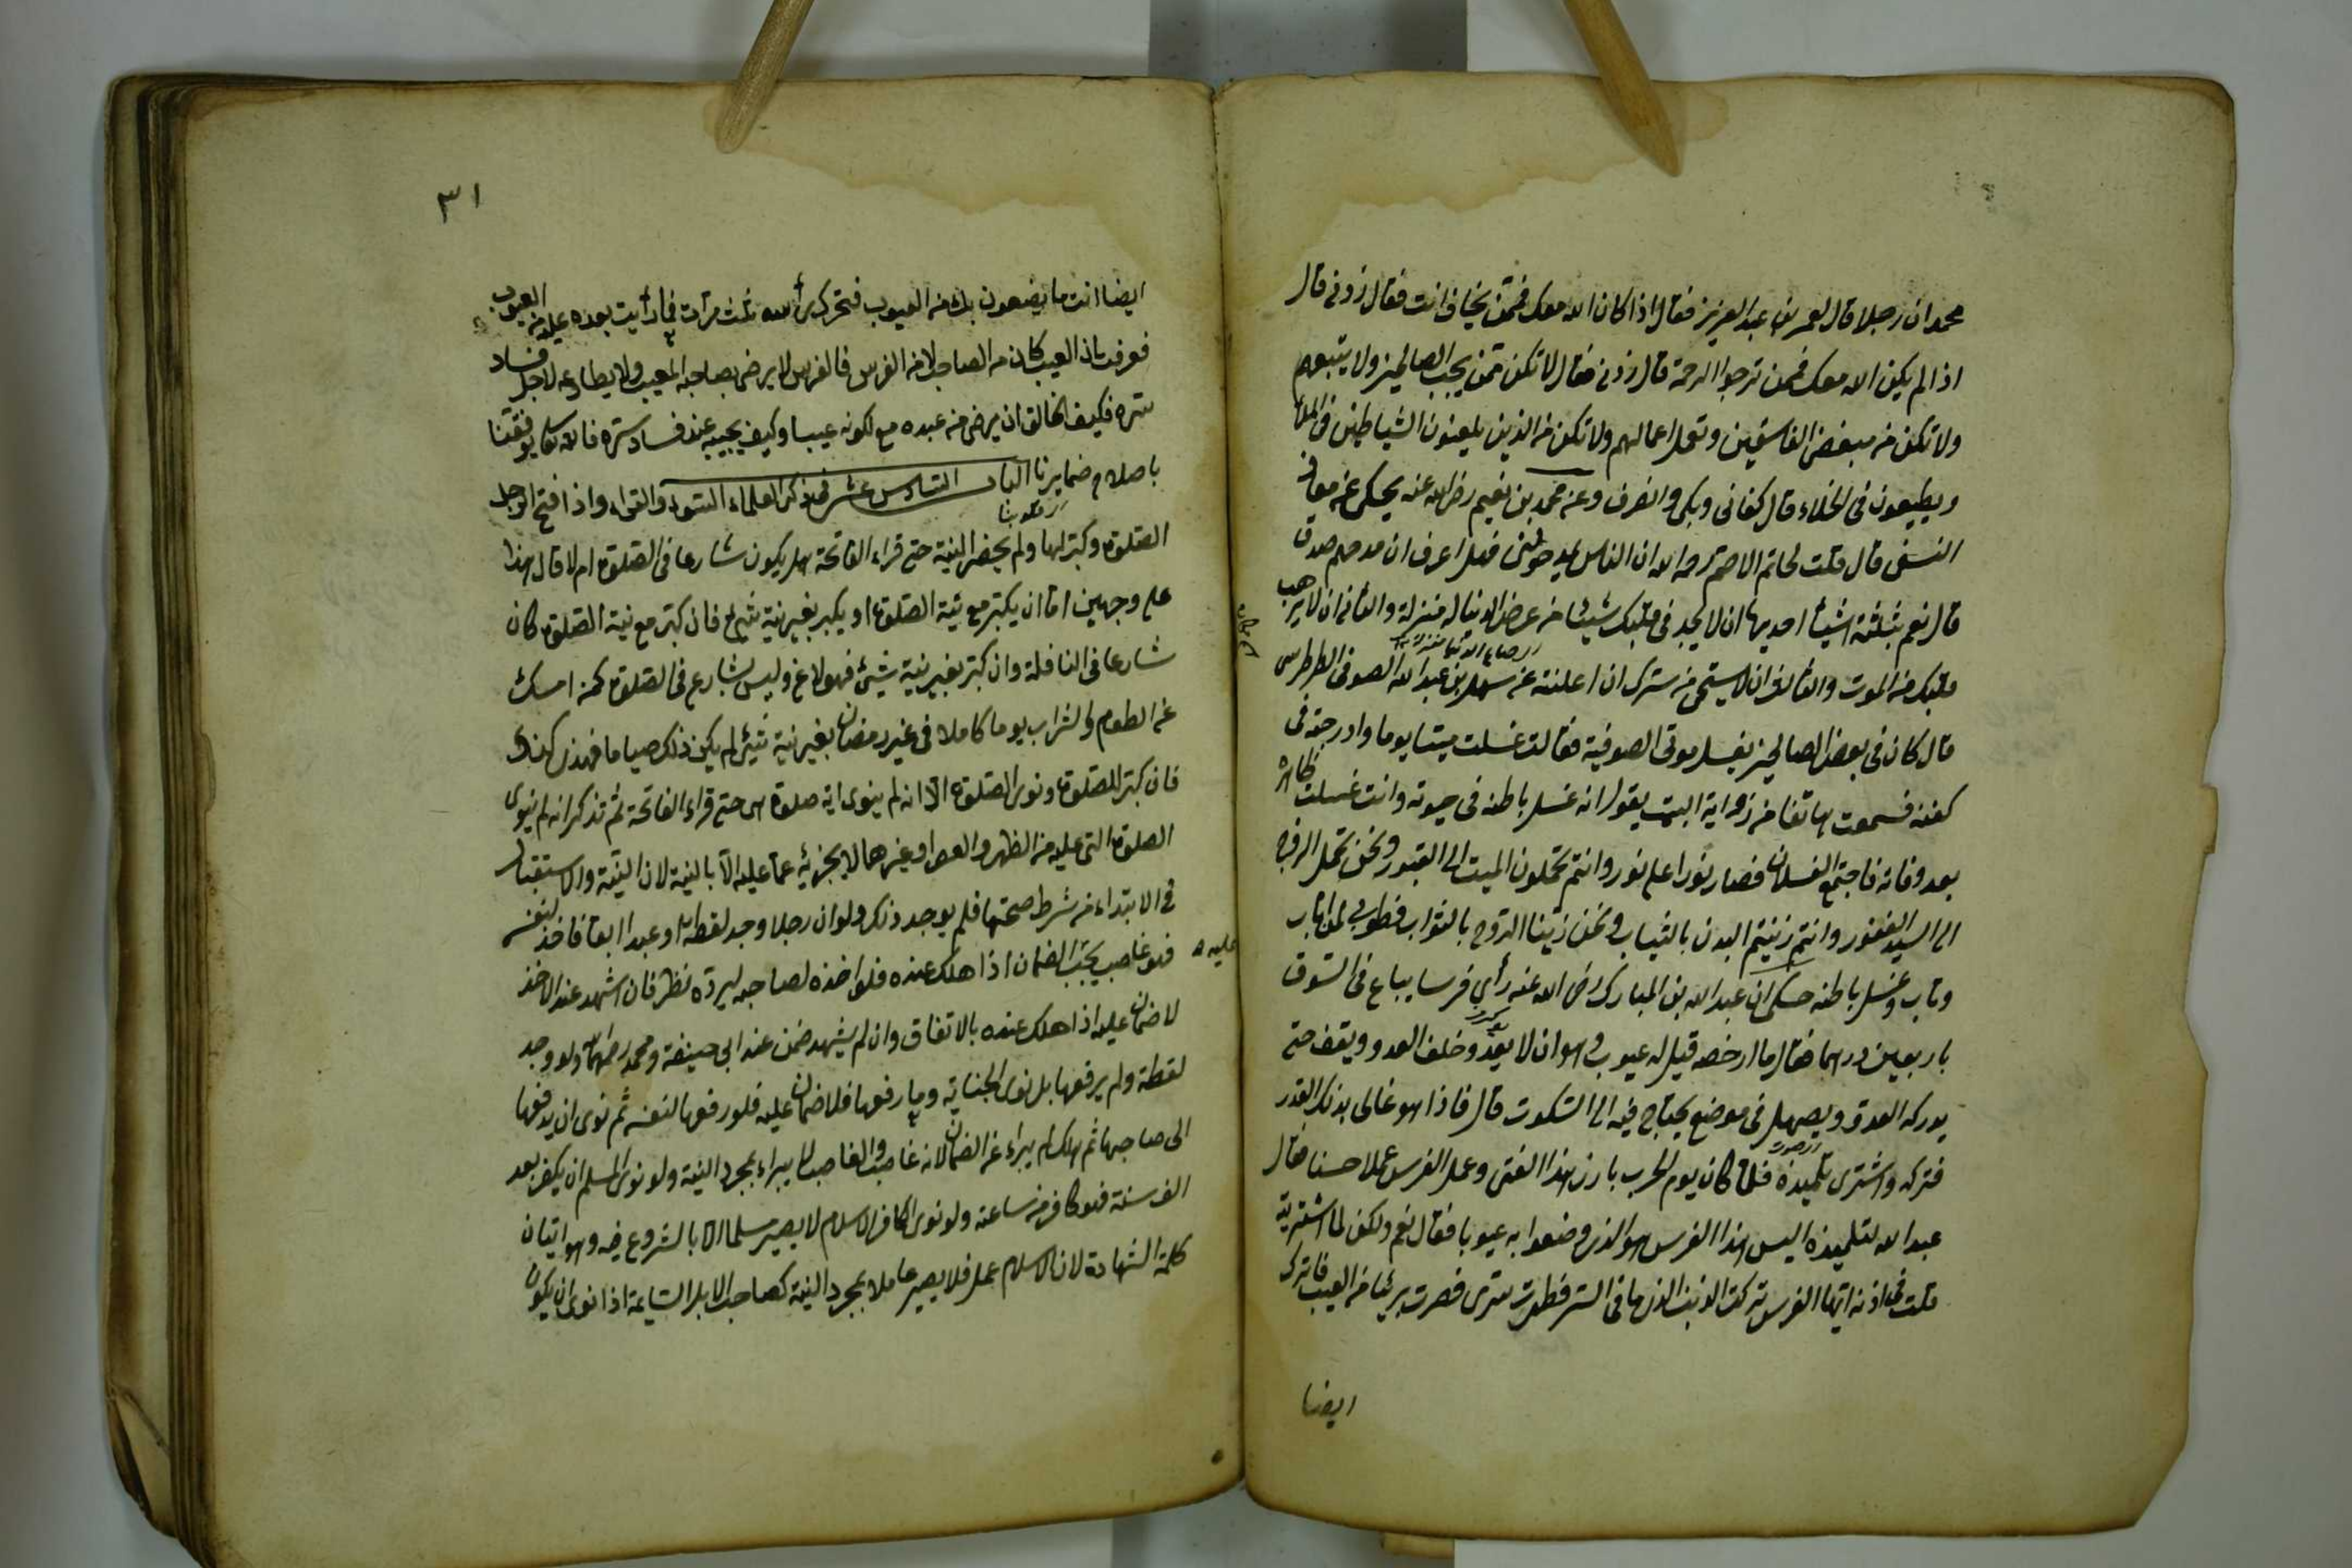 محمد ان رجلا قال لعمر بن عبد العزيز فقال اذا كان الله معك فممّن يخاف انت فقال زدني قال
اذا لم يكن الله معك فممن ترجوا الرحمة قال زدني فقال لا تكن ممّن يحب الصالحين ولا يتبعهم
ولا تكن من مبغض الفاسقين وتعمل اعمالهم ولا تكن من الذين يلعنون الشياطين في الملاء
ويطيعون في الخلاء قال كفاني وبكى وانصرف وعن محمد بن نعيم رضى الله عنه يحكى عن معاذ
النسفى قال قلت لحاتم الاصم رحمه الله ان الناس فهل اعرف ان مدحهم صدق
قال نعم بثلثة اشياء احديها ان لا يجد في قلبك شيئا من عرض الدنيا له منزلة والثانى ان لا يرهب
قلبك من الموت والثالث ان لا يستحى من سترك ان اعلنته عن سهل بن عبد الله الصوفى الطرطرسى
قال كان في بعض الصالحين يغسل موتى الصوفية فقالت غسلت ميتا يوما وادرجته في
كفنه فسمعت هاتفا من زواية البيت يقول انه غسل باطنه في حيوته وانت غسلت ظاهره
بعد وفاته فاجتمع الغسلان فصار نورا على نور وانتم تحملون الميت الى القبور ونحن نحمل الروح
الى السيد الغفور وانتم زينتم البدن بالثياب ونحن زيّنا الرّوح بالثواب فطوبى لمن اناب
وتاب وغسل باطنه حكى ان عبد الله بن المبارك رضى الله عنه رأى فرسا يباع في السّوق
باربعين درهما فقال ما ارخصه قيل له عيوب وهو ان لا يعدو خلف العدو ويقف حتى
يدركه العدوّ ويصهل في موضع يحتاج فيه الى السّكوت قال فاذا هو غالى بذلك القدر
فتركه واشترى تلميذه فلمّا كان يوم الحرب بارز هذا الفتى وعمل الفرس عملا حسنا فقال
عبد الله لتلميذه اليس هذا الفرس هو الذى وضعوا به عيوبا فقال نعم ولكن لما اشتريته
قلت في اذنه ايّها الفرس تركت الذنب الذى هنا في السّر فطهرت سترى فصرت بريئا من العيب فاترك
ايضا
٣١
ايضا انت ما يضعون بك من العيوب فتحرك رأسه ثلث مرّات فما رأيت بعده عليه من العيوب
فعرفت ان العيب كان من الصاحب لا من الفرس فالفرس لا يرضى بصاحبه المعيب ولا يطاوعه لاجل فساد
ستره فكيف الخالق ان يرضى من عبده مع كونه عيبا وكيف يحببه عند فساد ستره فالله تعالى يوفقنا
باصلاح ضمايرنا الباب السّادس عشر فى ذكر العلماء السّوء والقراء واذا افتح الرجل
الصّلوة وكبّر لها ولم يحضر النية حتى قراء الفاتحة هل يكون شارعا في الصّلوة ام لا قال هذا
على وجهين امّا ان يكبّر مع نيّة الصّلوة او يكبر بغير نيّة شئ فان كبّر مع نية الصّلوة كان
شارعا في النافلة وان كبّر بغير نية شئ فهو لاغ وليس بشارع في الصّلوة كمن امسك
عن الطعام والشراب يوما كاملا في غير رمضان بغير نية شئ لم يكن ذلك صياما فهذى كهذى
فان كبّر للصّلوة ونوى الصّلوة الّا انه لم ينوى اية صلوة هى حتى قراء الفاتحة ثم تذكر انه لم ينوى
الصلوة التى عليه من الظهر والعصر او غيرهما لا يجزيه عمّا عليه الّا بالنية لان النيّة والاستقبال
في الابتداء من شرط صحتها فلم يوجد ذلك ولو ان رجلا وجد لقطة او عبدا ابقا فاخذ لنفسه
فهو غاصب يجب الضمان اذا هلك عنده فلو اخذه لصاحبه ليردّه نظر فان اشهد عند الاخذ
لا ضمان عليه اذا هلك عنده بالاتفاق وان لم يشهد ضمن عند ابى حنيفة ومحمد ولو وجد
لقطة ولم يرفعها بل نوى الجناية وما رفعها فلا ضمان عليه فلو رفعها لنفسه ثم نوى ان يدفعها
الى صاحبها ثم هلك لم يبراء عن الضمان لانه غاصب والغاصب لا يبراء بمجرد النية ولو نوى المسلم ان يكفر بعد
الف سنة فهو كافر من ساعته ولو نوى الكافر الاسلام لا يصير مسلما الا بالشروع فيه وهو اتيان
كلمة الشهادة لان الاسلام عمل فلا يصير عاملا بمجرد النية كصاحب الابل السّايمة اذا نوى ان يكون